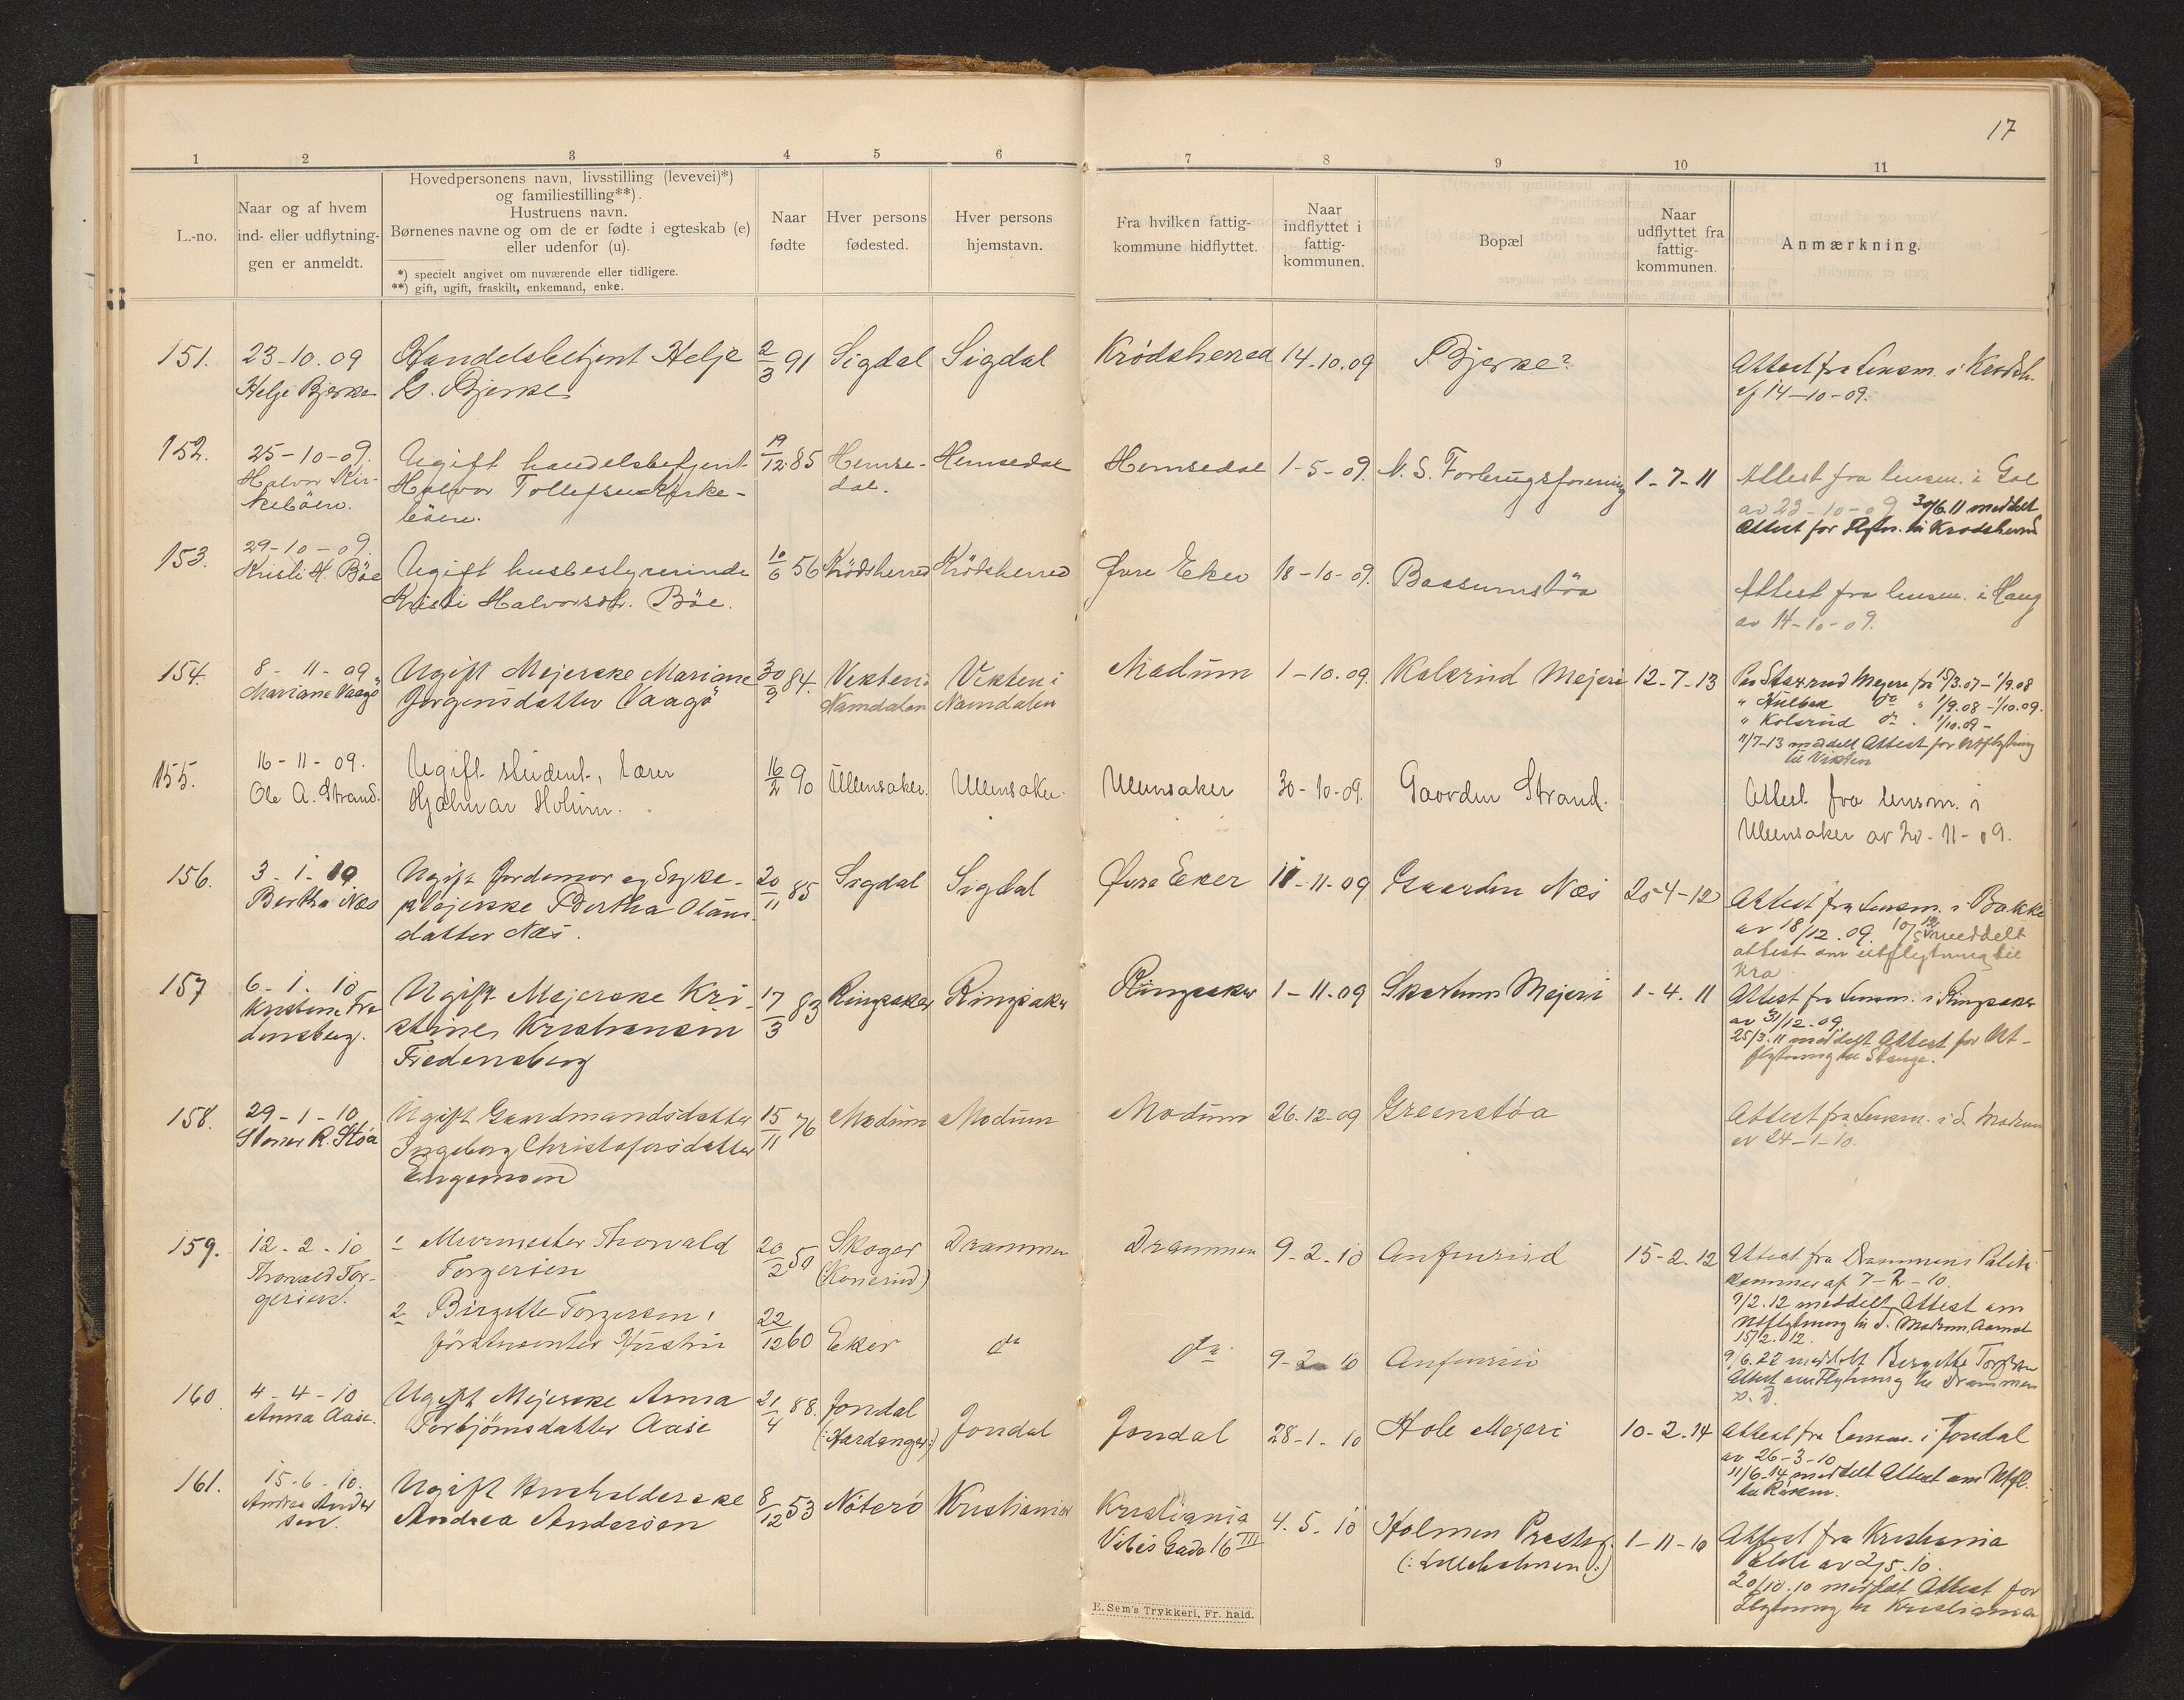 17
1 2 3 4 5 6 7 8 9 10 11
L.-no.
Naar og af hvem
ind- eller udflytnin-
gen er anmeldt.
Hovedpersonens navn, livsstilling (levevei)*)
og familiestilling**).
Hustruens navn.
Børnenes navne og om de er fødte i egteskab (e)
eller udenfor (u).
*) specielt angivet om nuværende eller tidligere.
**) gift, ugift, fraskilt, enkemand, enke.
Naar
fødte
Hver persons
fødested.
Hver persons
hjemstavn.
Fra hvilken fattig-
kommune hidflyttet.
Naar
indflyttet i
fattig-
kommunen.
Bopæl
Naar
udflyttet fra
fattig-
kommunen.
Anmærkning.
151.
23-10.09
Helge Bjerke
Handelsbetjent Helje
G. Bjerke
2/3 91
Sigdal
Sigdal
Krødsherred
14-10.09
Bjerke?
Attest fra Lensm. i Krødsh.
af 14-10-09.
152.
25-10-09.
Halvor Kir-
kebøen.
Ugift handelsbetjent
Halvor Tollefsen Kirke-
bøen.
19/12 85
Hemse-
dal.
Hemsedal
Hemsedal
1-5-09.
N. S. Forbrugsforening
1-7-11
Attest fra lensm. i Gol
av 23-10-09 30/6.11 meddelt
Attest for Flytn. til Krødsherred
153.
29-10-09.
Kristi H. Böe
Ugift husbestyrerinde
Kristi Halvorsdt. Böe.
10/6 56
Krödsherred
Krödsherred
Øvre Eker
18-10-09.
Bassumstøa
Attest fra lensm. i Haug
av 14-10-09.
154.
8-11-09
Mariane Vaagö
Ugift Mejerske Mariane
Jørgensdatter Vaagö
30/9 84.
Vikten i
Namdalen
Vikten i
Namdalen
Modum
1-10.09.
Kolsrud Mejeri
12-7-13
Paa Skarrud Mejeri fra 15/3.07-1/9.08
" Hulbak do " 1/9.08-1/10.09.
" Kolsrud do . 1/10.09-
11/7-13 meddelt Attest for Utflytning
til Vikten
155.
16-11-09.
Ole A. Strand.
Ugift student, lærer
Hjalmar Holum.
16/2 90
Ullensaker.
Ullensaker
Ullensaker
30-10-09.
Gaarden Strand.
Attest fra lensm. i
Ullensaker av 20-11-09.
156.
3-1-10
Bertha Næs
Ugift Jordemor og Syke-
plejerske Bertha Olaus-
datter Næs.
20/11 85
Sigdal
Sigdal
Øvre Eker
11-11-09
Gaarden Næs
25-4-12
Attest fra Lensm. i Bakke
av 18/12.09. 10/5 12 meddelt
attest om utflytning til
Kra
157
6-1.10
Kristine Fre
densberg.
Ugift Mejerske Kri-
stine Kristiansen
Fredensberg
17/3 83
Ringsaker
Ringsaker
Ringsaker
1-11-09
Skartum Mejeri
1-4.11
Attest fra Lensm. i Ringsaker
av 31/12.09
25/3.11 meddelt Attest for Ut-
flytning til Stange.
158.
29-1-10
Stener R. Støa
Ugift Gaardmandsdatter
Ingeborg Christofersdatter
Engemoen
15/11 76
Modum
Modum
Modum
26.12-09
Greenstøa
Attest fra Lensm. i S. Modum
av 24-1-10.
159.
12-2-10
Thorvald Tor-
gersen.
1 Murmester Thorvald
Torgersen
20/2 50
Skoger
(Konerud)
Drammen
Drammen
9-2.10
Anfinrud
15-2.12
Attest fra Drammens Politi
kammer af 7-2-10.
9/2.12 meddelt Attest om
Utflytning til S. Modum,
15/2.12.
2 Birgitte Torgersen,
førstnævntes Hustru
22/12 60
Eker
do
do
9-2-10
Anfinrud
9/6.22 meddelt Birgitte Torgersen
Attest om Flytning til Drammen
160
4-4-10
Anna Aase.
Ugift Mejerske Anna
Torbjørnsdatter Aase
21/4 88.
Jondal
(:Hardanger:)
Jondal
Jondal
28-1.10
Hole Mejeri
10-2.14
Attest fra Lensm. i Jondal
av 26-3-10
11/6-14 meddelt Attest om Utfl.
til Röken.
161.
15-6-10.
Andrea Ander
sen.
Ugift Husholderske
Andrea Andersen
8/12 53
Nøterø
Kristiania
Kristiania
Vibes Gade 16 III
4.5.10
Holmen Prestg.
(:Lilleholmen:)
1-11-10
Attest fra Kristiania
Politi av 2/5.10.
20/10.10 meddelt Attest for
Flytning til Kristiania
E. Sem's Trykkeri, Fr. hald.